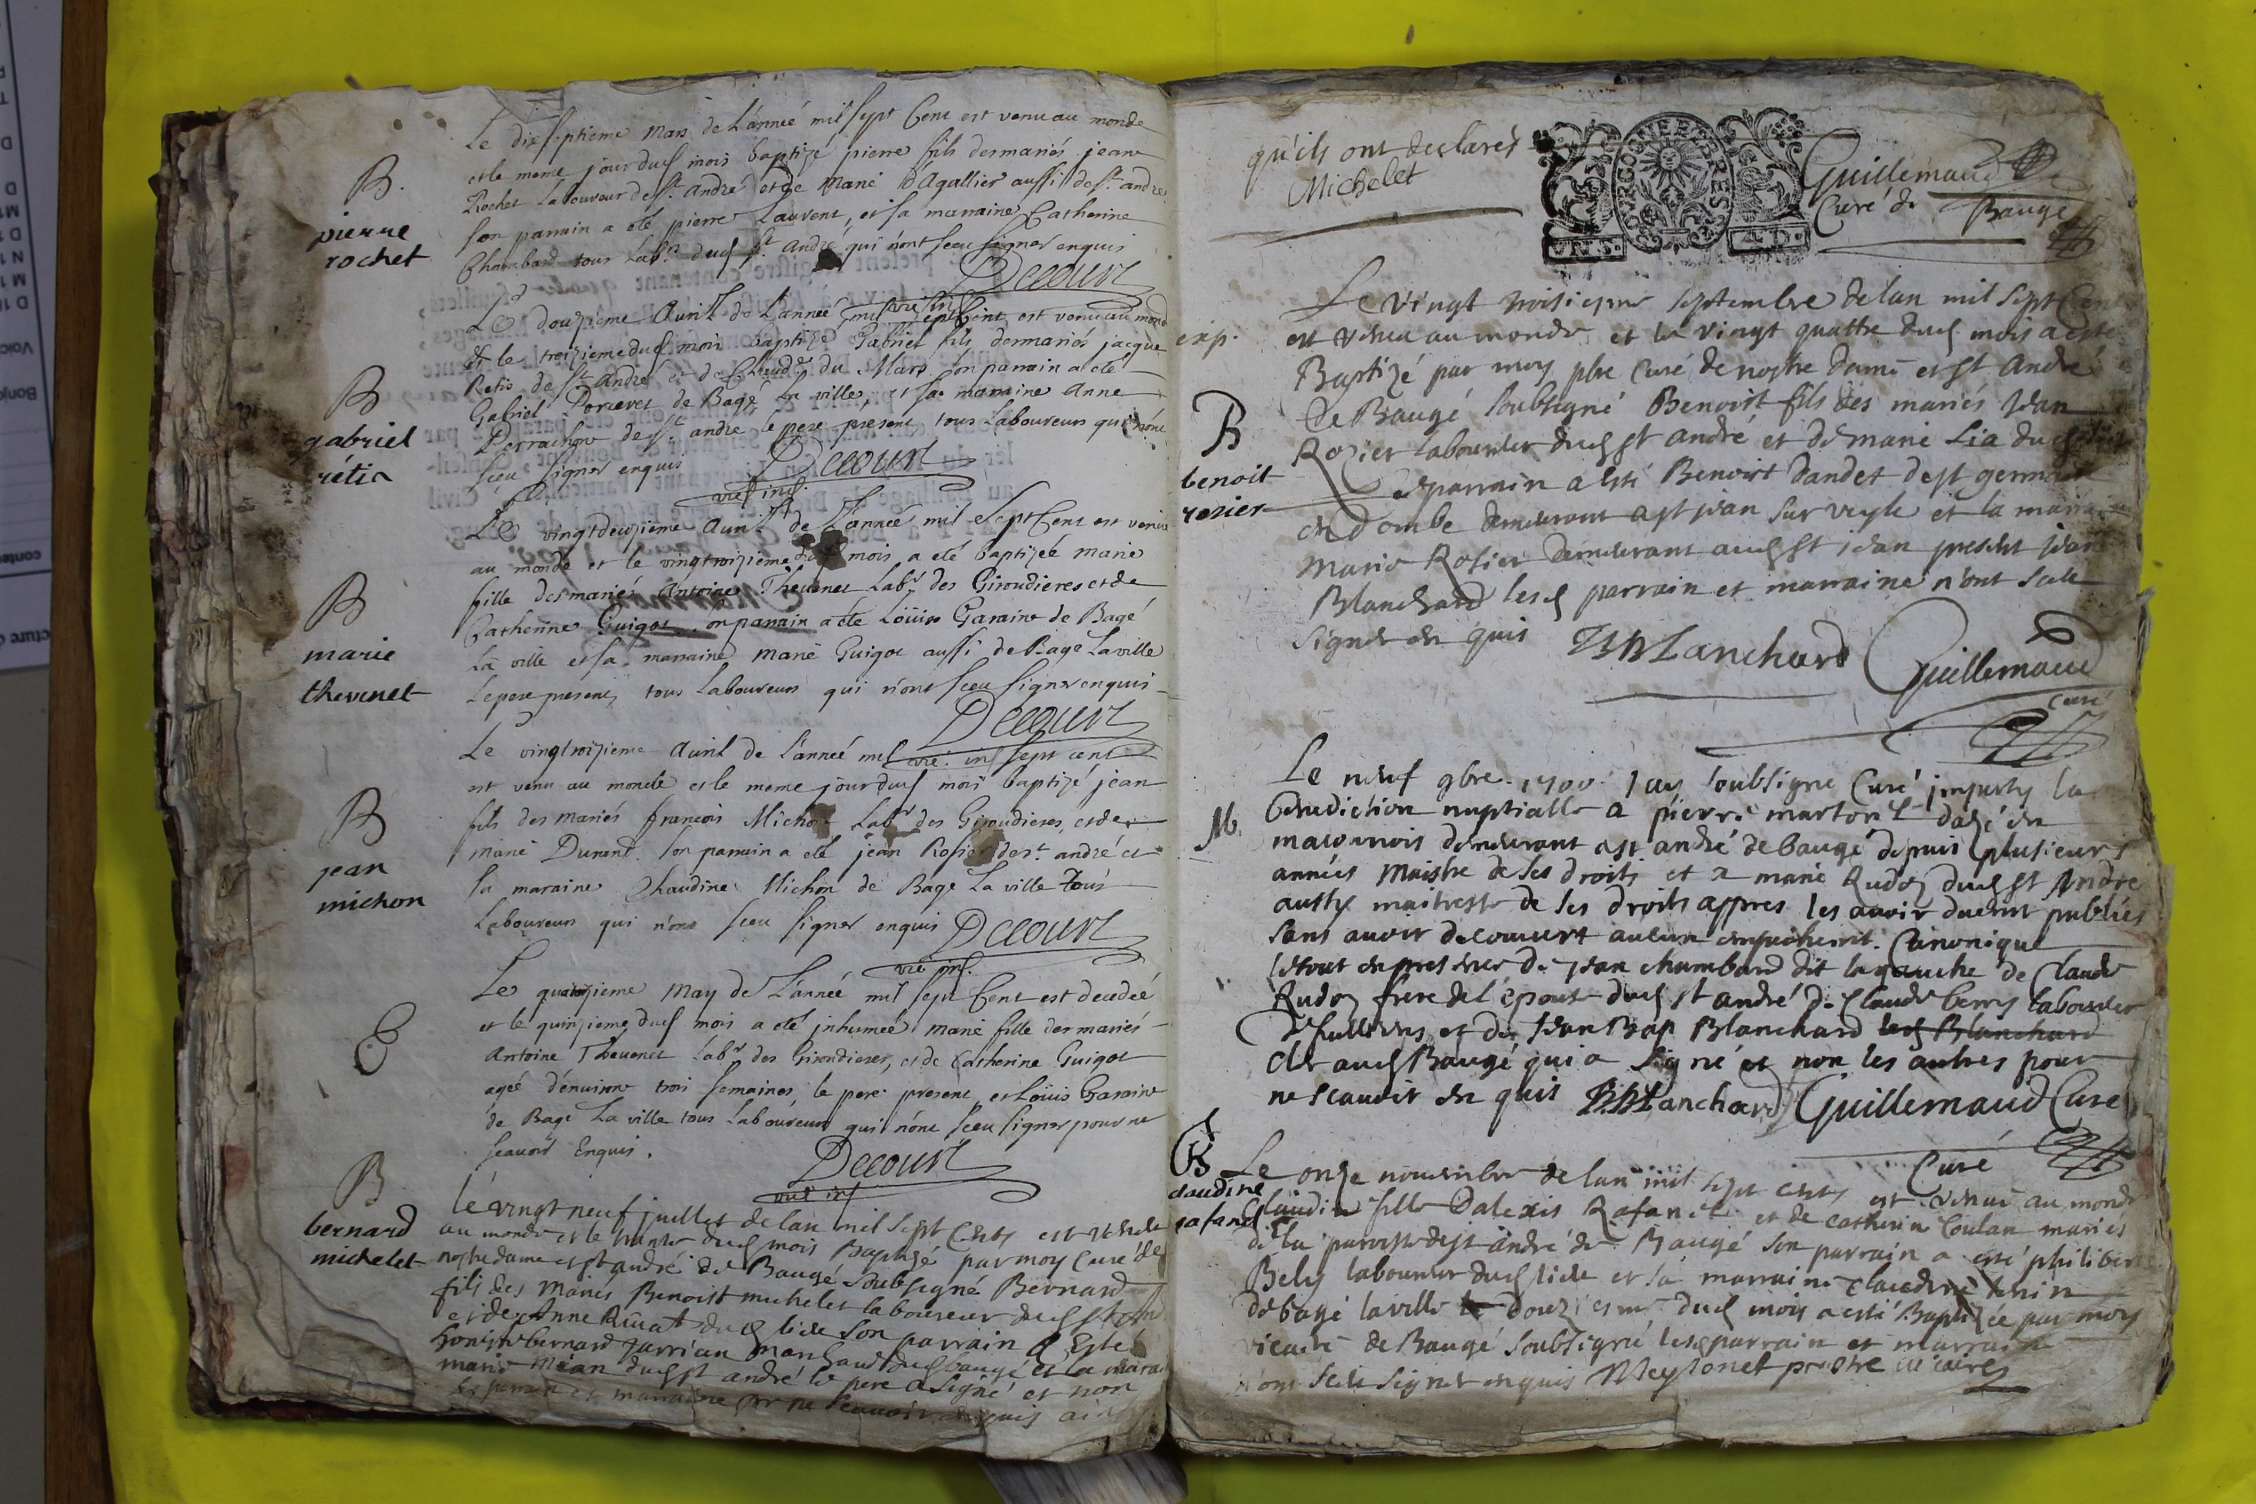 Le dixseptieme Mars de L'année mil sept Cent est venu au monde
et le meme jour dud mois baptizé pierre fils des mariés jean
Rochet Laboureur de st. andré et de Marie Dagallier aussi de st. andré
son parrain a eté pierre Laurent, et sa marraine Catherine
Chambard tous Labrs. dud st. andré qui n'ont sceu signer enquis
B.
pierre
rochet
Decourt
vre. inf.
Le douzieme Avril de L'année mil sept Cent est venu au monde
et le treizieme dud mois baptizé Gabriel fils des mariés jacque
Retis de st. andré et de du Mars son parrain a eté
Gabriel de Bagé La ville, et sa marraine Anne
Perrachon de st. andre le pere present tous Laboureurs qui n'ont
sceu signer enquis
B
gabriel
rétis
Decourt
vre. inf.
Le vingtdeuzieme Avril de L'année mil Sept Cent est venue
au monde et le vingtroizieme dud mois a eté baptizée marie
fille des mariés Antoine Thevenet Labr. des Giroudieres et de
Catherine Guigot, son parrain a eté Loüis Garaine de Bagé
La ville et sa marraine Marie Guigot aussi de Bagé La ville
Le pere present, tous Laboureurs qui n'ont sceu signer enquis
B
marie
thevenet
Decourt
vre. inf.
Le vingtroizieme Avril de L'année mil sept cent
est venu au monde et le meme jour dud mois baptizé jean
fils des mariés françois Michon Labr. des Giroudieres, et de
Marie Durand. son parrain a eté jean Rosier de st. andré et
sa maraine Claudine Michon de Bagé La ville Tous
Laboureurs qui n'ont sceu signer enquis
B
jean
michon
Decourt
vre. inf.
Le quatorzieme May de L'année mil sept Cent est decedée
et le quinzieme dud mois a eté inhumée marie fille des mariés
Antoine Thevenet Labr. des Giroudieres, et de Catherine Guigot
ageé d'environ trois semaines, le pere present et Loüis Garaine
de Bagé La ville tous Laboureurs qui n'ont sceu signer pour ne
scavoir Enquis.
Decourt
vre. inf.
B
bernard
michelet
le vingt neuf juillet de lan mil sept Cents est venu
au monde et le trente dud mois Baptizé par moy Curé de
nostre dame et st andré de Baugé soubsigné Bernard
fils des Mariés Benoist michelet laboureur dud st andré
et de Anne Rivat dud lieu son parrain a Esté
honeste bernard Jarrian marchand dud baugé et la marraine
marie dud st andré le pere a signé et non
les parrain et marraine pr ne scavoir enquis
qu'ils ont declarés
Michelet
BOURGOGNE ET BRESSE
Guillemaud
Curé de Baugé
Le vingt troisiesme septembre de lan mil sept Cent
est venu au monde et le vingt quattre dud mois a esté
Baptizé par moy pbre Curé de nostre dame et st André
de Baugé soubsigné Benoist fils des mariés Jean
Rozier laboureur dud st andré et de marie Lia dud lieu
parrain a esté Benoist dandet de st germain
en dombe demeurant a st jean sur veyle et la marraine
Marie Rosier demeurant aud st jean present jean
Blanchard lesd parrain et marraine n'ont sceu
signer en quis
exp.
B
benoit
rosier
JB Blanchard Guillemaud
curé
Le neuf 9bre. 1700. Jay soubsigne Curé imparty la
benediction nuptialle a pierre marton dazé en
maconnois demeurant a st andré de baugé depuis plusieurs
années Maistre de ses droits et a marie Rudoz dud st Andre
aussy maitresse de ses droits appres les avoir duemt publiés
sans avoir decouvert aucun empechemt. Canonique
le tout en presence de jean chambard dit la gauche de Claude
Rudoz frere de l'epouse dud st andré de Claude berry laboureur
et de Jean Bap Blanchard lesd Blanchard
clr aud Baugé qui a signé et non les autres pour
ne scavoir en quis JB Blanchard Guillemaud Curé
M.
B
claudine
rafanel
Curé
Le onze novembre de lan mil sept cents est venue au monde
Claudine fille Dalexis Rafanel et de catherine Coulan mariés
de la paroisse de st andré de Baugé son parrain a esté philibert
Bely laboureur dud lieu et sa marraine claudine
de bagé la ville le douziesme dud mois a esté Baptizée par moy
vicaire de Baugé soubsigné lesd parrain et marraine
n'ont sceu signer enquis Meylonet prestre vicaire